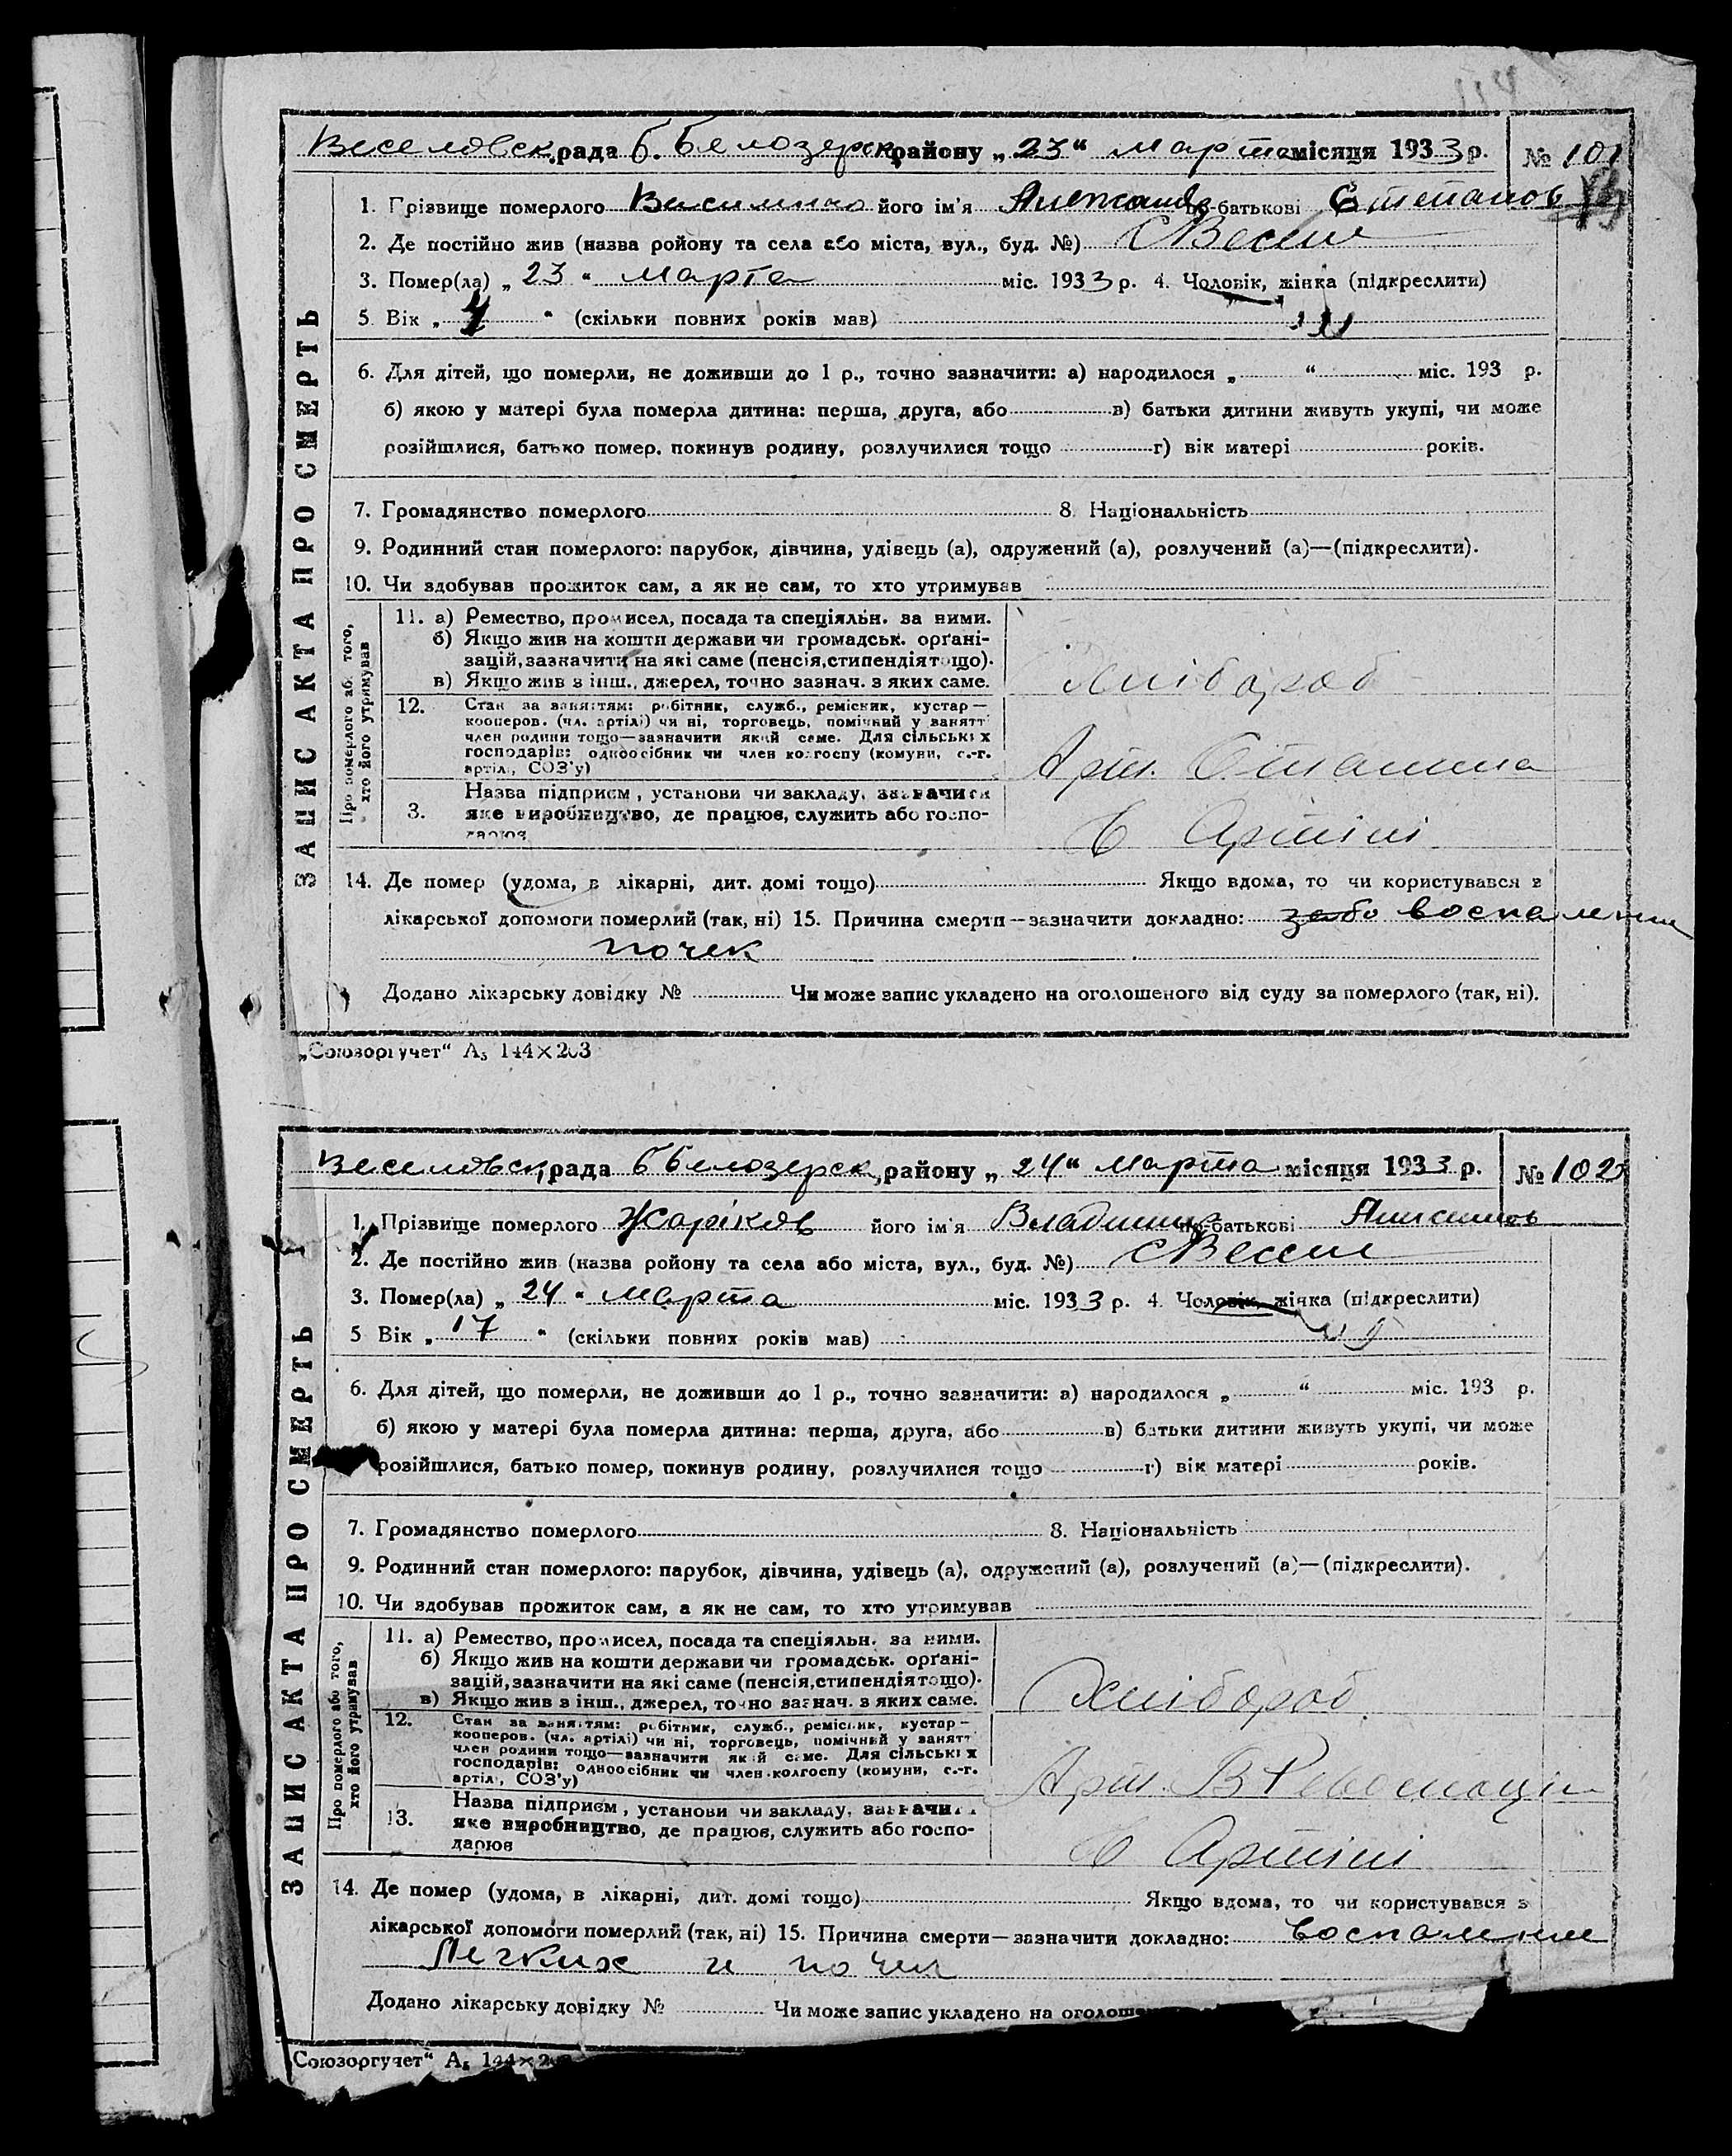 Веселовск. рада б. Белозерск району „23“ Марта місяця 1933 р. № 101
1. Прізвище померлого Василенко його ім'я по-батькові Степанов
2. Де постійно жив (назва ройону та села або міста, вул., буд. №) с Весели
3. Помер(ла) „ 23 “ Марта міс. 1933 р. 4. Чоловік, жінка (підкреслити)
5. Вік „ “ (скільки повних років мав)
6. Для дітей, що померли, не доживши до 1 р., точно зазначити: а) народилося „ “ міс. 193 р.
б) якою у матері була померла дитина: перша, друга, або в) батьки дитини живуть укупі, чи може
розійшлися, батько помер, покинув родину, розлучилися тощо г) вік матері років.
7. Громадянство померлого 8. Національність
9. Родинний стан померлого: парубок, дівчина, удівець (а), одружений (а), розлучений (а)—(підкреслити).
10. Чи здобував прожиток сам, а як не сам, то хто утримував
ЗАПИС АКТА ПРО СМЕРТЬ
Про померлого або того,
хто його утримував
11. а) Ремество, промисел, посада та спеціяльн. за ними.
б) Якщо жив на кошти держави чи громадськ. орґані-
зацій, зазначити на які саме (пенсія, стипендія тощо).
в) Якщо жив з інш., джерел, точно зазнач. з яких саме.
хлібороб
12. Стан за заняттям: робітник, служб., ремісник, кустар—
кооперов. (чл. артілі) чи ні, торговець, помічний у занятт
член родини тощо—зазначити який саме. Для сільських
господарів: одноосібник чи член колгоспу (комуни, с.-г.
артілі, СОЗ'у)
Арт. Сталина
Назва підприєм, установи чи закладу, зазначити
3. яке виробництво, де працює, служить або госпо-
дарює
В Артілі
14. Де помер (удома, в лікарні, дит. домі тощо) Якщо вдома, то чи користувався з
лікарської допомоги померлий (так, ні) 15. Причина смерти—зазначити докладно: воспаление
почек
Додано лікарську довідку № Чи може запис укладено на оголошеного від суду за померлого (так, ні).
„Союзоргучет“ А₅ 144×203
Веселовск, рада б Белозерск, району „24“ Марта місяця 1933 р. № 102
1. Прізвище померлого Жаріков його ім'я Владимир по-батькові
2. Де постійно жив (назва ройону та села або міста, вул., буд. №) с Весели
3. Помер(ла) „ 24 “ Марта міс. 1933 р. 4. Чоловік, жінка (підкреслити)
5 Вік „ 17 “ (скільки повних років мав)
6. Для дітей, що померли, не доживши до 1 р., точно зазначити: а) народилося „ “ міс. 193 р.
б) якою у матері була померла дитина: перша, друга, або в) батьки дитини живуть укупі, чи може
розійшлися, батько помер, покинув родину, розлучилися тощо г) вік матері років.
7. Громадянство померлого 8. Національність
9. Родинний стан померлого: парубок, дівчина, удівець (а), одружений (а), розлучений (а)—(підкреслити).
10. Чи здобував прожиток сам, а як не сам, то хто утримував
ЗАПИС АКТА ПРО СМЕРТЬ
Про померлого або того,
хто його утримував
11. а) Ремество, промисел, посада та спеціяльн. за ними.
б) Якщо жив на кошти держави чи громадськ. орґані-
зацій, зазначити на які саме (пенсія, стипендія тощо).
в) Якщо жив з інш., джерел, точно зазнач. з яких саме.
хлібороб
12. Стан за заняттям: робітник, служб., ремісник, кустар—
кооперов. (чл. артілі) чи ні, торговець, помічний у занятт
член родини тощо—зазначити який саме. Для сільських
господарів: одноосібник чи член колгоспу (комуни, с.-г.
артілі, СОЗ'у)
Арт. В Революцін
Назва підприєм, установи чи закладу, зазначи
13. яке виробництво, де працює, служить або госпо-
дарює
В Артілі
14. Де помер (удома, в лікарні, дит. домі тощо) Якщо вдома, то чи користувався з
лікарської допомоги померлий (так, ні) 15. Причина смерти—зазначити докладно: воспаление
Легких и почек
Додано лікарську довідку № Чи може запис укладено на оголоше
Союзоргучет“ А₅ 144×20